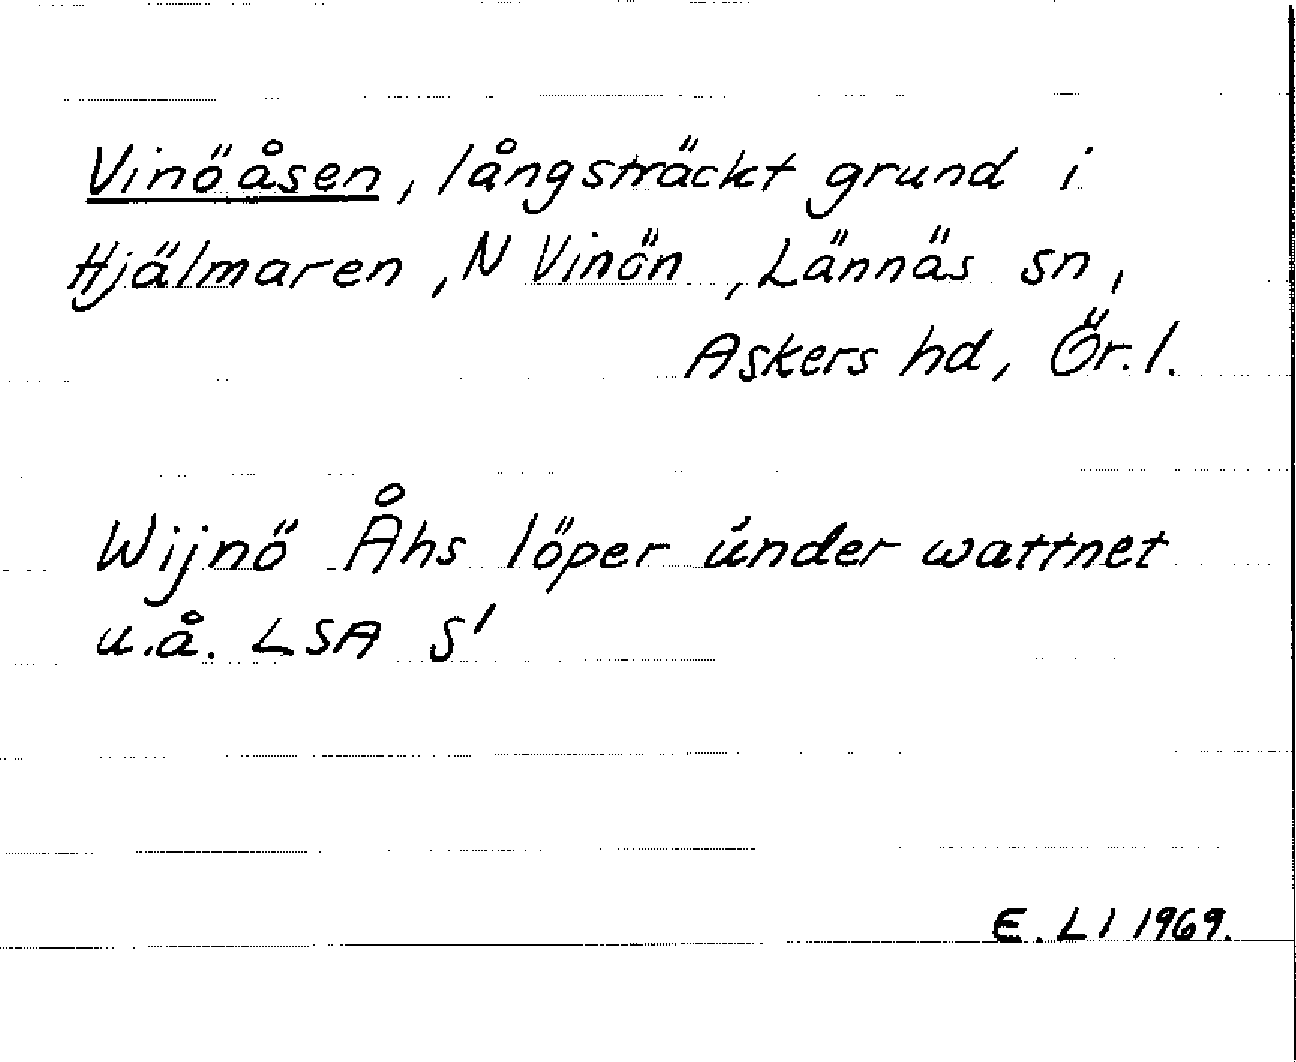 Vinöåsen, långsträckt grund i
Hjälmaren, N Vinön, Lännäs sn,
Askers hd, Ör. l.
Wijnö Åhs löper únder wattnet
u.å. LSA S'
E. LI 1969.